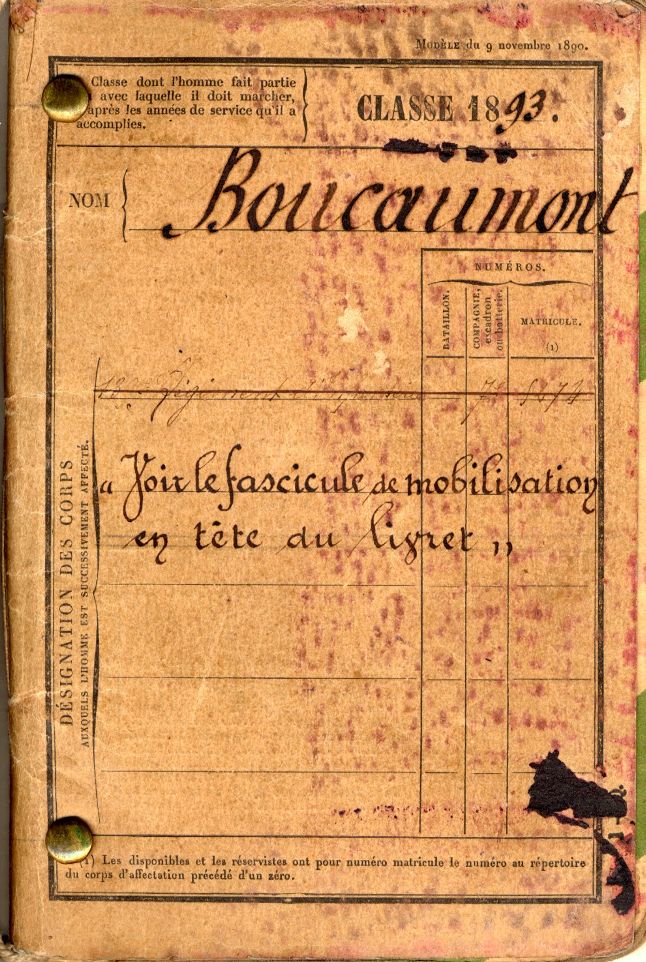 MODÈLE du 9 novembre 1890.
Classe dont l'homme fait partie
avec laquelle il doit marcher,
après les années de service qu'il a
accomplies.
CLASSE 1893.
NOM
Boucaumont
NUMÉROS.
BATAILLON.
COMPAGNIE,
escadron
ou batterie.
MATRICULE.
(1)
DÉSIGNATION DES CORPS
AUXQUELS L'HOMME EST SUCCESSIVEMENT AFFECTÉ.
« Voir le fascicule de mobilisation
en tête du livret »
(1) Les disponibles et les réservistes ont pour numéro matricule le numéro au répertoire
du corps d'affectation précédé d'un zéro.